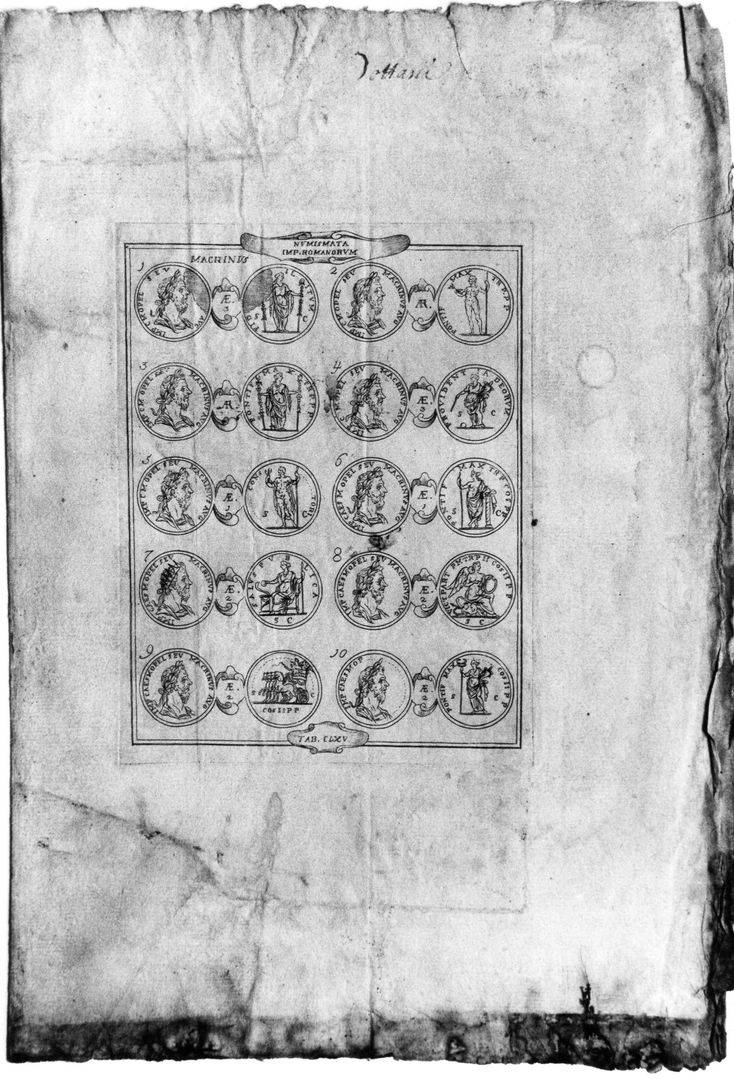 NVMISMATA
IMP. ROMANORVM
MACRINVS
1
IMP C M OPEL SEV
AVG
Æ
3
S C
2
IMP C M OPEL SEV MACRINVS AVG
AR
PONTIF MAX TR P P P
3
IMP C M OPEL SEV MACRINVS AVG
AR
PONTIF MAX TR P
4
IMP C M OPEL SEV MACRINVS AVG
Æ
3
PROVIDENTIA DEORVM
S C
5
IMP C M OPEL SEV MACRINVS AVG
Æ.
1
S C
6
IMP CAES M OPEL SEV MACRINVS AVG
Æ.
1
PONTIF MAX TR P COS P P
S C
7
IMP CAES M OPEL SEV MACRINVS AVG
Æ.
2
PVBLICA
S C
8
IMP CAES M OPEL SEV MACRINVS AVG
Æ.
2
VICT PART P M TR P II COS II P P
S C
9
IMP CAES M OPEL SEV MACRINVS AVG
Æ.
2
S C
COS II P P
10
IMP CAES M OP
Æ.
2
PONTIF M COS II P P
S C
TAB. CLXV.